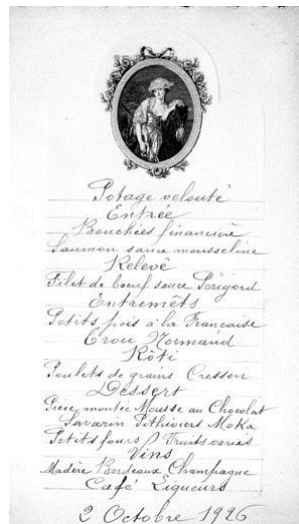 Potage velouté
Entrée
Bouchées financière
Saumon sauce mousseline
Relevé
Filet de boeuf sauce Périgord
Entremêts
Petits pois à la Francaise
Trou Normand
Rôti
Poulets de grains Cresson
Dessert
Pièce montée Mousse au Chocolat
Savarin Pithiviers Moka
Petits fours Fruits
Vins
Madère Bordeaux Champagne
Café Liqueurs
2 Octobre 1926